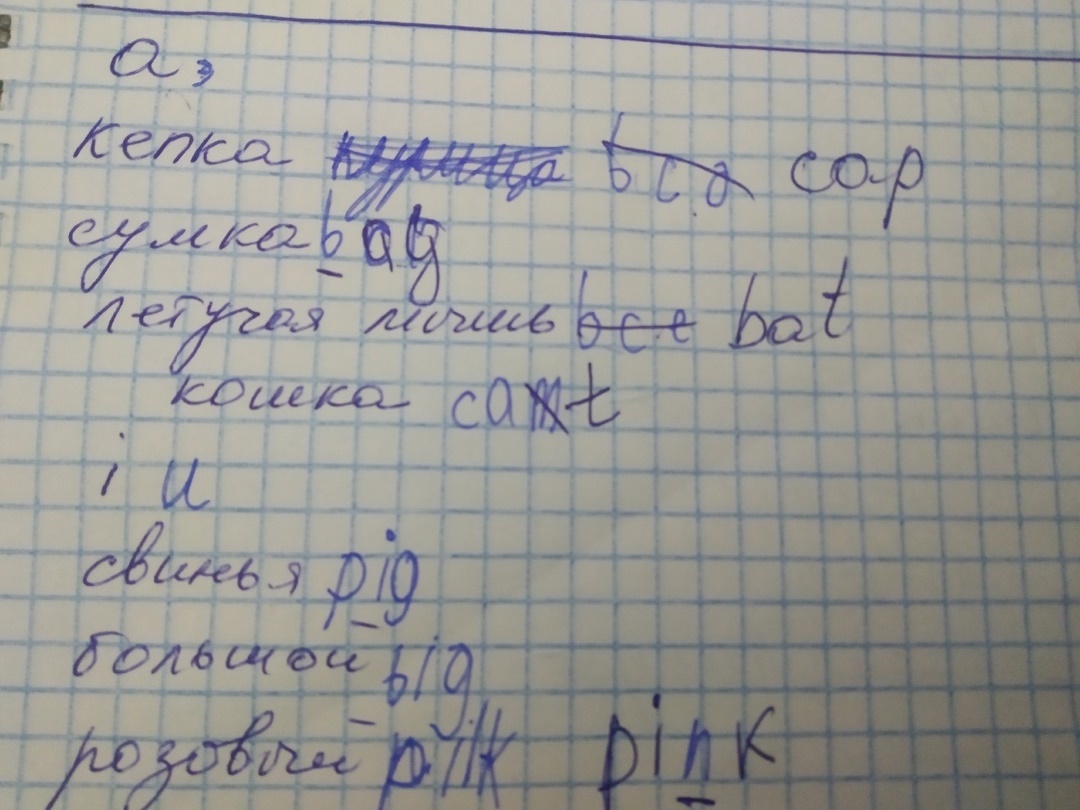 a э
кепка cap
сумка bag
летучая мишь bat
кошка cat
i и
свинья pig
большой big
розовый pink